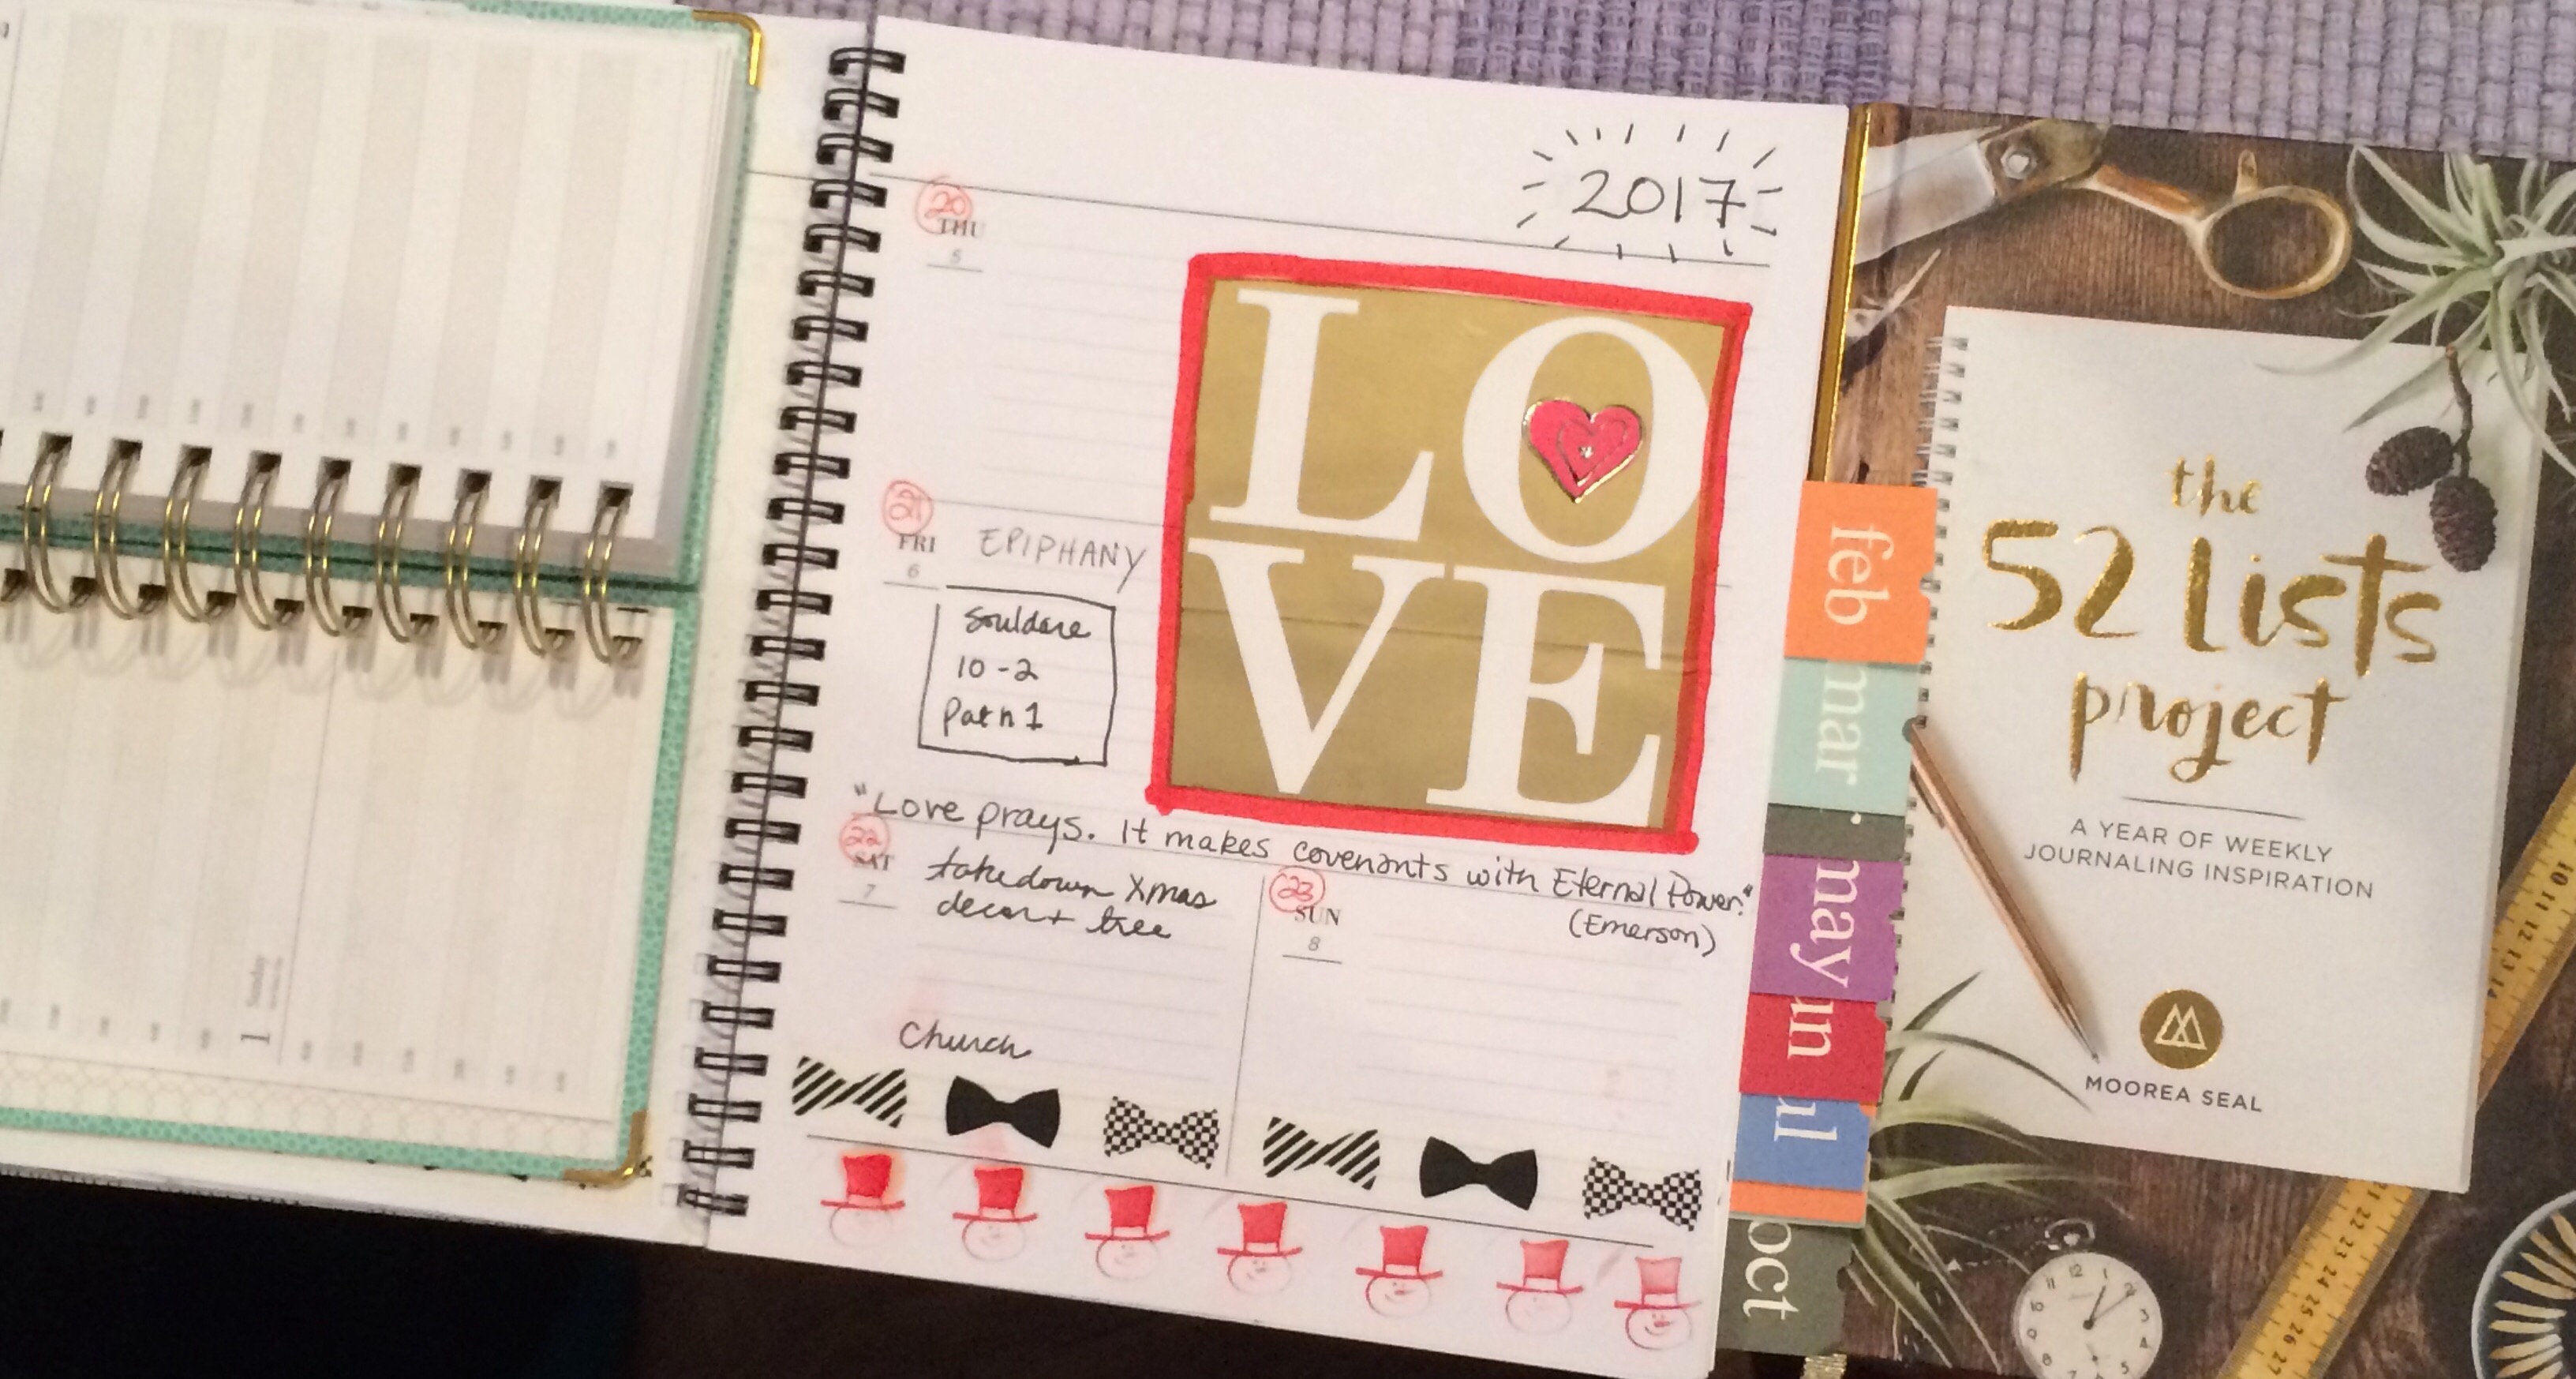 1 Sunday
2017
20
THU
5
LO
VE
21
FRI
6
EPIPHANY
10-2
Path 1
"Love prays. It makes covenants with Eternal Power."
(Emerson)
22
SAT
7
takedown Xmas
decor + tree
Church
23
SUN
8
feb
mar
may
un
ul
oct
the
52 lists
project
A YEAR OF WEEKLY
JOURNALING INSPIRATION
MOOREA SEAL
10 11 12 13 14
21 22 23 24 25 26 27